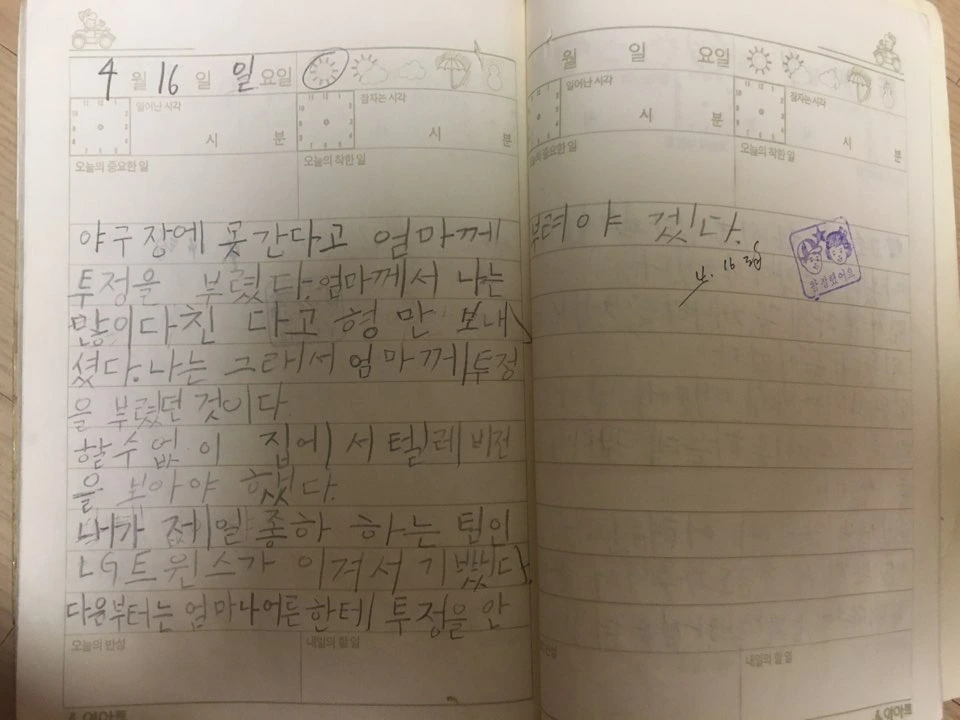 4 월 16 일 일 요일
일어난 시각
시 분
잠자는 시각
시 분
오늘의 중요한 일
오늘의 착한 일
야구장에 못간다고 엄마께
투정을 부렸다.엄마께서 나는
많이다친 다고 형만 보내
셨다.나는 그래서 엄마께 투정
을 부렸던 것이다.
할수없이 집에서 텔레비전
을 보아야 했다.
내가 제일 좋하 하는 팀인
LG트윈스가 이겨서 기뻤다.
다음부터는 엄마나어른한테 투정을 안
오늘의 반성
내일의 할 일
월 일 요일
일어난 시각
시 분
잠자는 시각
시 분
오늘의 중요한 일
오늘의 착한 일
부려야 겠다.
4. 16
참 잘했어요
내일의 할 일